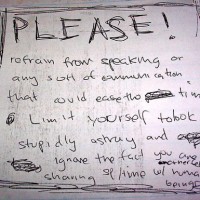 PLEASE!
refrain from speaking or
any sort of communication
that could ease the tim
& Limit yourself to look
stupidly astray and
ignore the fact you are
sharing sp/time w/ human
beings